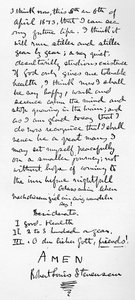 I think now, this 5th or 6th of
April 1873, that I can see
my future life. I think it
will run stiller and stiller
year by year; a very quiet,
desultorily studious existence.
If God only gives me tolerable
health, I think now I shall
be very happy; work and
science calm the mind and
stop gnawing in the brain; and
as I am glad to say that I
do now recognise that I shall
never be a great man, I
may set myself peacefully
on a smaller journey; not
without hope of coming to
the inn before nightfall.
O dass mein Leben
Nach diesem Ziel ein ewig Wandeln
sey!
Desiderata.
I. Good Health
II. 2 to 3 hundred a year.
III. O du lieber Gott, friends!
AMEN
Robert Louis Stevenson